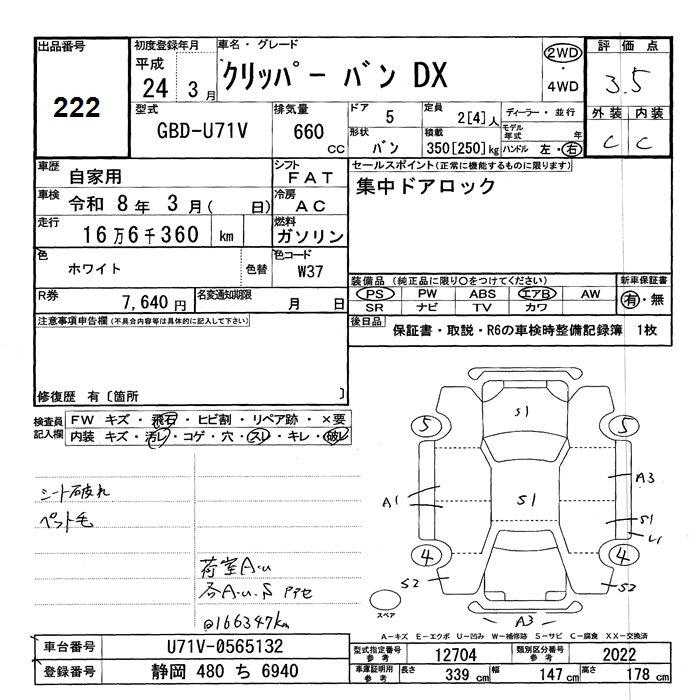 出品番号
222
初度登録年月
平成
24 3月
車名・グレード
クリッパー バン DX
2WD
・
4WD
評価点
3.5
外装 内装
C C
型式
GBD-U71V
排気量
660 cc
ドア 5
形状 バン
定員 2[4]人
積載 350[250]kg
ディーラー・並行
モデル年式 年
ハンドル 左・右
車歴 自家用
車検 令和 8年 3月( 日)
走行 16万6千360 km
シフト FAT
冷房 AC
燃料 ガソリン
色 ホワイト 色替
色コード W37
R券 7,640円
名変通知期限 月 日
注意事項申告欄(不具合内容等は具体的に記入して下さい)
修復歴 有〔箇所 〕
セールスポイント(正常に機能するものに限ります)
集中ドアロック
装備品(純正品に限り○をつけてください)
PS PW ABS エアB AW
SR ナビ TV カワ
新車保証書
有・無
後日品
保証書・取説・R6の車検時整備記録簿 1枚
検査員記入欄
FW キズ・飛石・ヒビ割・リペア跡・×要
内装 キズ・汚レ・コゲ・穴・スレ・キレ・破レ
シート破れ
ペット毛
荷室A・u
@166347km
S1
5 5
A3
A1
S1
S1
L1
4 4
S2 S2
A3
スペア
A-キズ E-エクボ U-凹み W-補修跡 S-サビ C-腐食 XX-交換済
車台番号 U71V-0565132
登録番号 静岡 480 ち 6940
型式指定番号参考 12704
類別区分番号参考 2022
車庫証明用参考 長さ 339 cm 幅 147 cm 高さ 178 cm